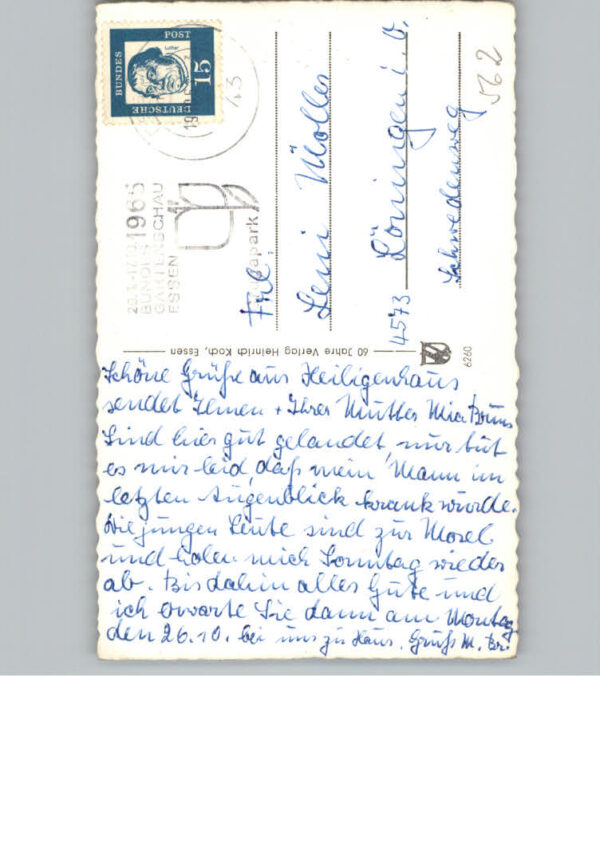 Schöne Grüße aus Heiligenhaus
sendet Ihnen + Ihrer Mutter Mia Bruns
Sind hier gut gelandet, nur tut
es mir leid, daß mein Mann im
letzten Augenblick krank wurde.
Die jungen Leute sind zur Mosel
und holen mich Sonntag wieder
ab. Bis dahin alles Gute und
ich erwarte Sie dann am Montag
den 26.10. bei uns zu Haus. Gruß M. Br.
60 Jahre Verlag Heinrich Koch, Essen
6260
Frl.
Leni Möller
4573 Löningen i. O.
Schwedenweg
562
DEUTSCHE
BUNDES
POST
15
Luther
43
1965
BUNDES
GARTENSCHAU
ESSEN